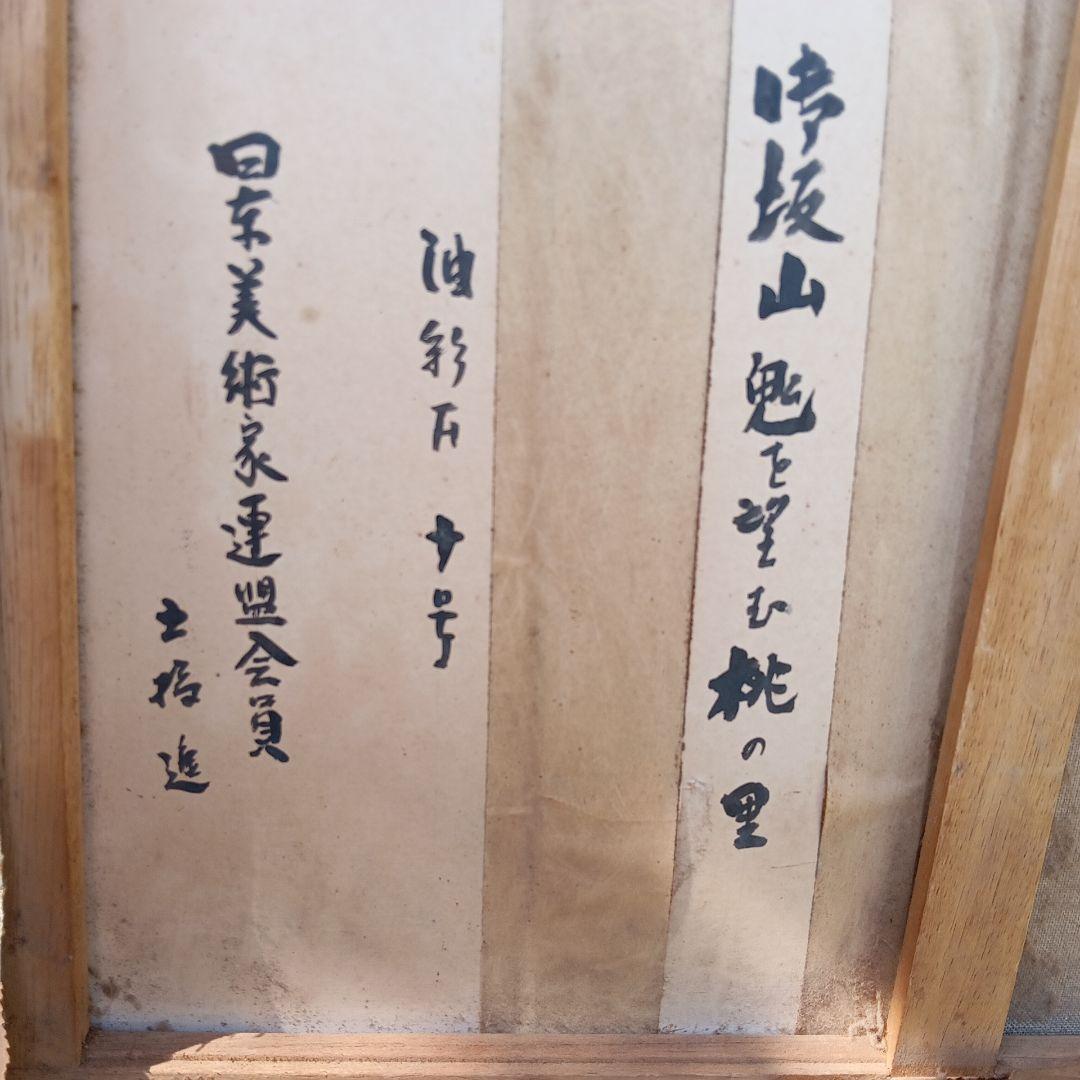 御坂山魁を望む桃の里
油彩 十号
日本美術家連盟会員
土橋 進